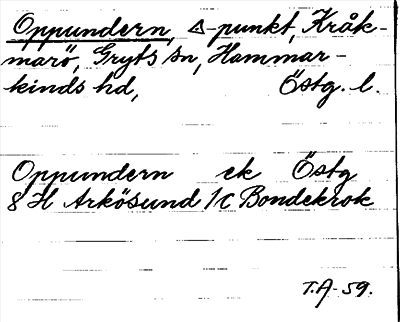 Oppundern, △-punkt, Kråk-
marö, Gryts sn, Hammar-
kinds hd, Östg. l.
Oppundern ek Östg
8 H Arkösund 1c Bondekrok
T.A-59.